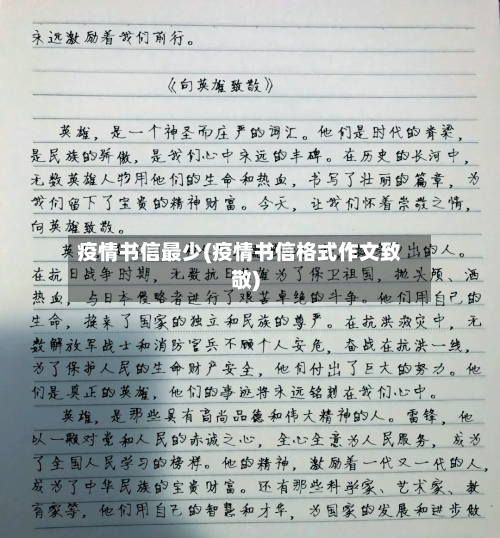 永远激励着我们前行。
《向英雄致敬》
英雄，是一个神圣而庄严的词汇。他们是时代的脊梁，
是民族的骄傲，是我们心中永远的丰碑。在历史的长河中，
无数英雄人物用他们的生命和热血，书写了壮丽的篇章，为
我们留下了宝贵的精神财富。今天，让我们怀着崇敬之情，
向英雄致敬。
英 出的人。
疫情书信最少(疫情书信格式作文致
敬)
在抗日战争时期，无数抗日英雄为了保卫祖国，抛头颅、洒
热血，与日本侵略者进行了艰苦卓绝的斗争。他们用自己的
生命，换来了国家的独立和民族的尊严。在抗洪救灾中，无
数解放军战士和消防官兵不顾个人安危，奋战在抗洪一线，
为了保护人民的生命财产安全，他们付出了巨大的努力。他
们是真正的英雄，他们的事迹将永远铭刻在我们心中。
英雄，是那些具有高尚品德和伟大精神的人。雷锋，他
以一颗对党和人民的赤诚之心，全心全意为人民服务，成为
了全国人民学习的榜样。他的精神，激励着一代又一代的人，
成为了中华民族的宝贵财富。还有那些科学家、艺术家、教
育家等，他们用自己的智慧和才华，为国家的发展和进步做